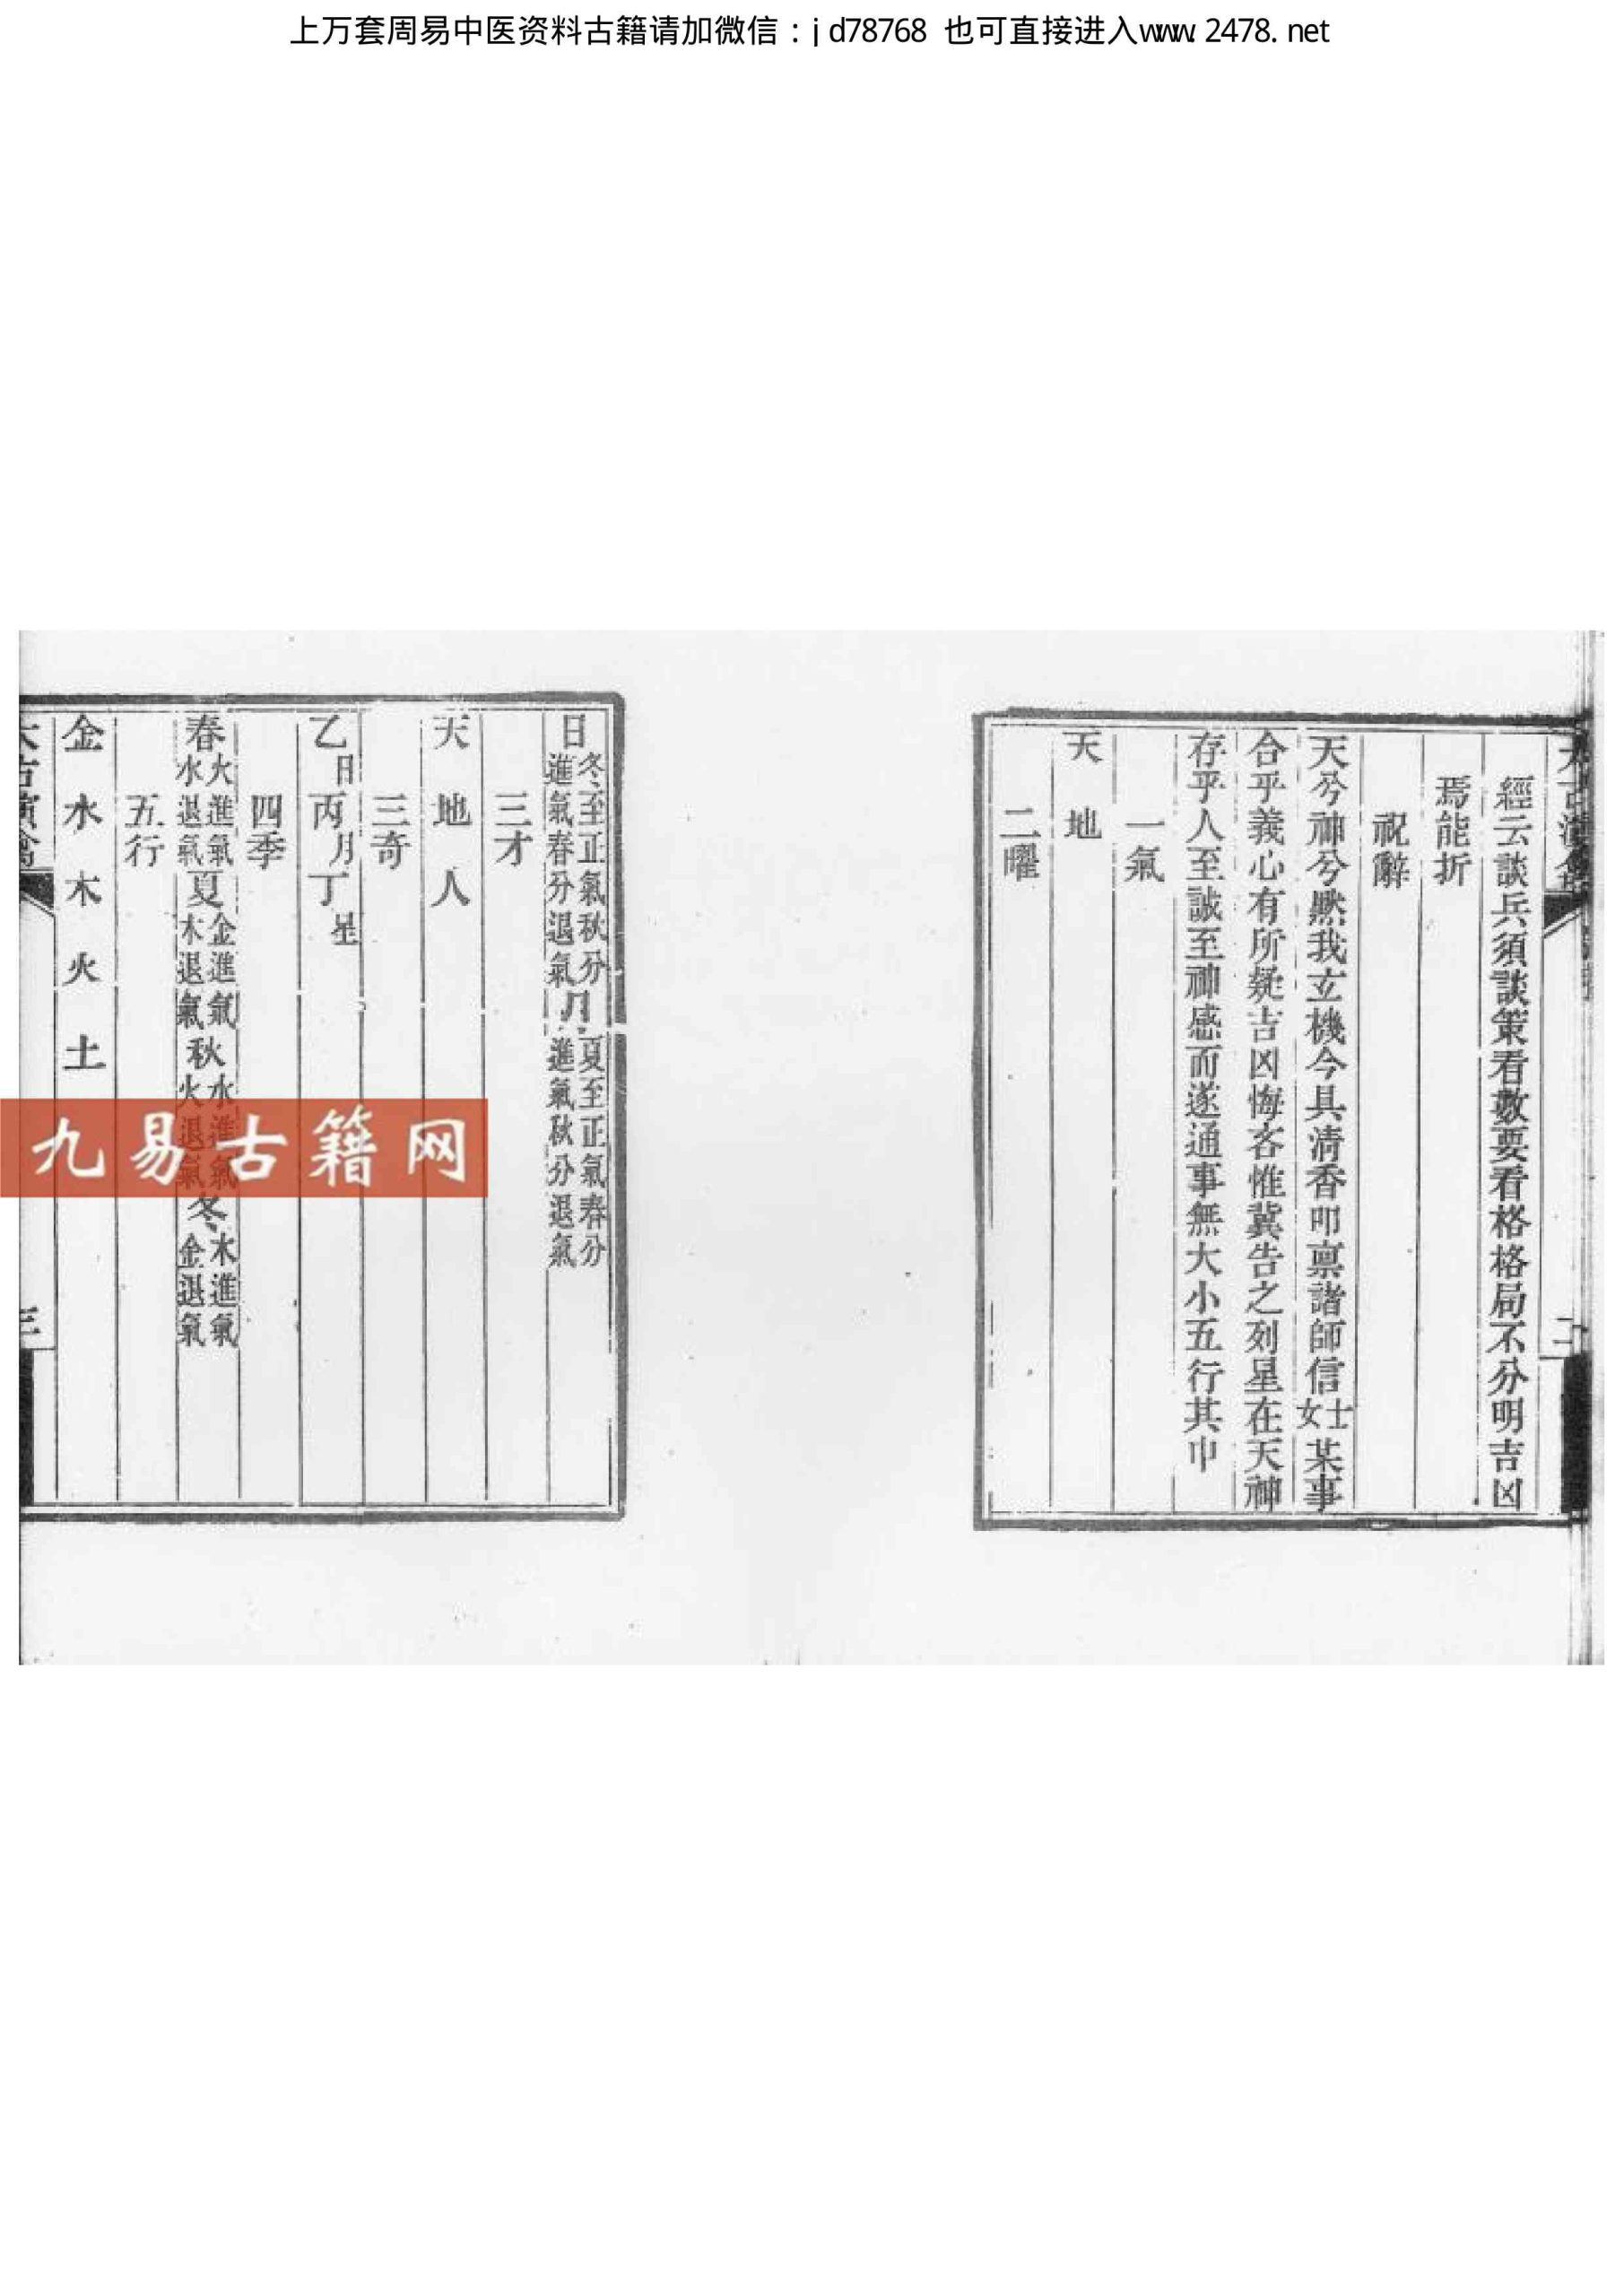 上万套周易中医资料古籍请加微信：jd78768 也可直接进入www.2478.net
經云談兵須談策看數要看格格局不分明吉凶
焉能折
祝辭
天兮神兮然我立機今具清香叩禀諸師信士女某事
合乎義心有所疑吉凶悔吝惟冀告之列星在天神
存乎人至誠至神感而遂通事無大小五行其中
一氣
天地
二曜
二
日冬至正氣秋分進氣春分退氣月夏至正氣春分進氣秋分退氣
三才
天地人
三奇
乙日丙月丁星
四季
春火進氣水退氣夏金進氣木退氣秋水進氣火退氣冬木進氣金退氣
五行
金水木火土
三
九易古籍网